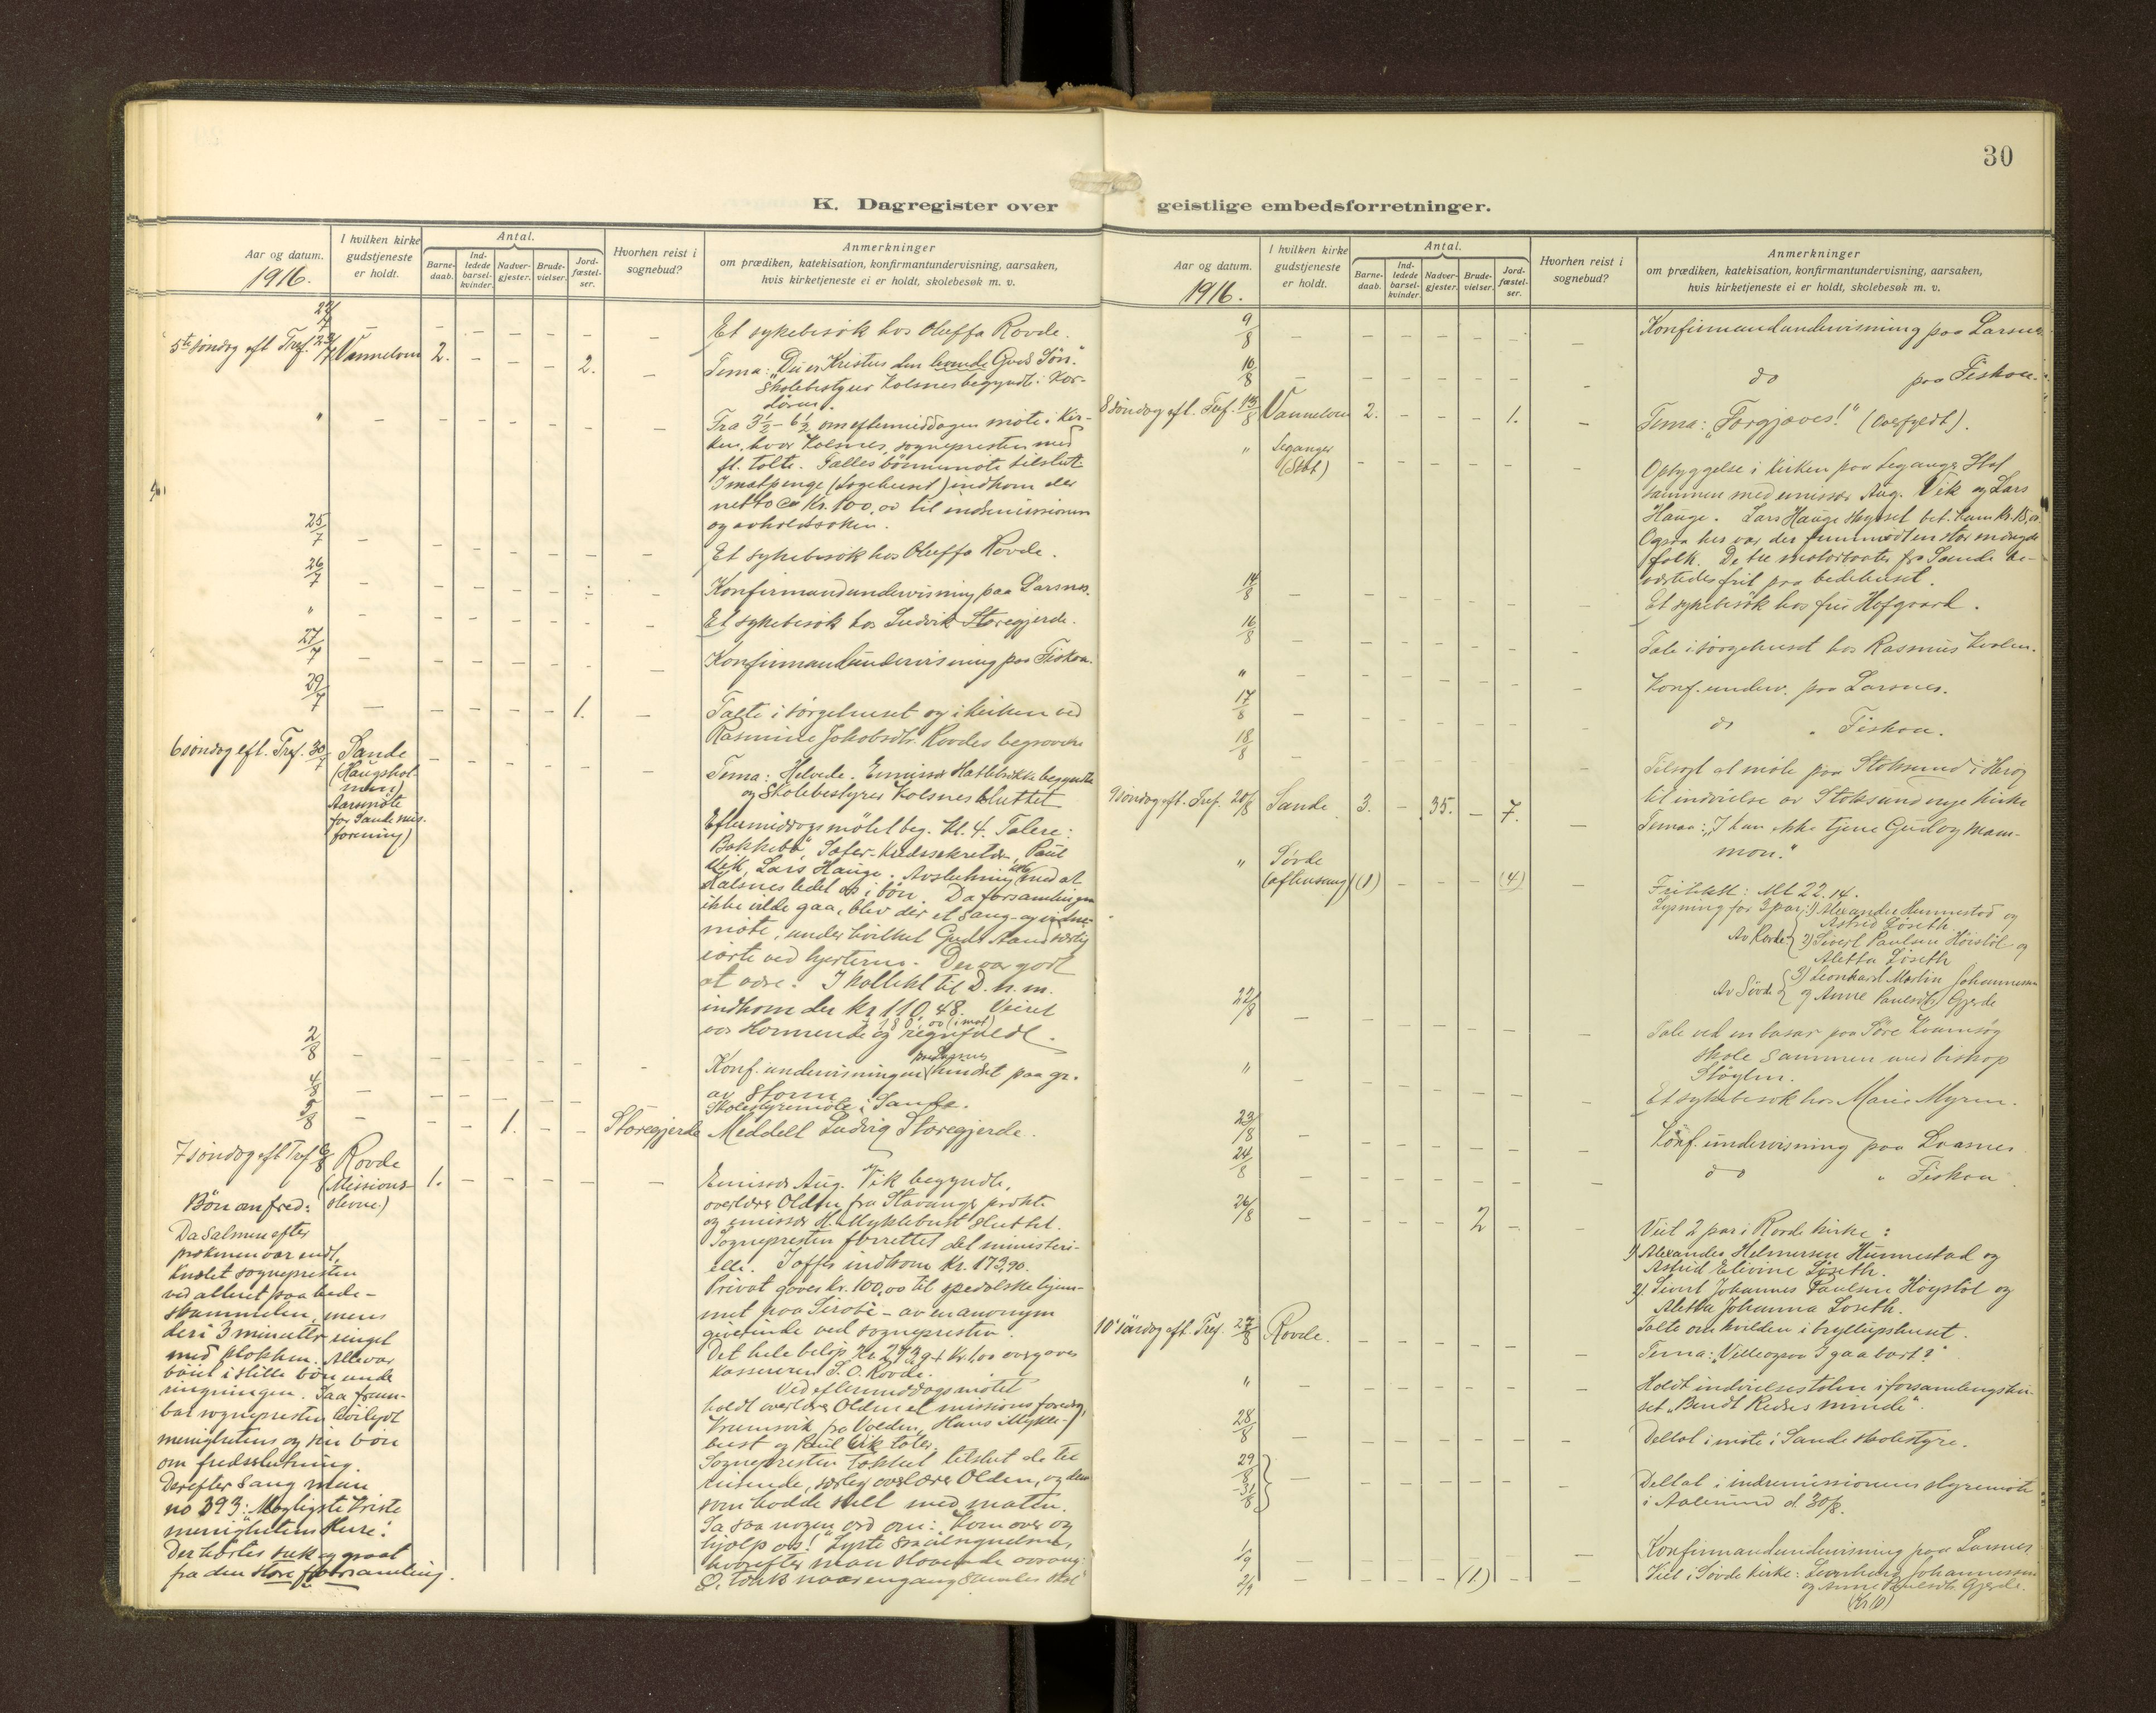 30
K. Dagregister over geistlige embedsforretninger.
Aar og datum.
1916.
I hvilken kirke gudstjeneste er holdt.
Antal.
Barne-daab.
Ind-ledede barsel-kvinder.
Nadver-gjester.
Brude-vielser.
Jord-fæstel-ser.
Hvorhen reist i sognebud?
Anmerkninger
om prædiken, katekisation, konfirmantundervisning, aarsaken,
hvis kirketjeneste ei er holdt, skolebesøk m. v.
22/7 – – – – – – – Et sykebesøk hos Oluffa Rovde.
5te søndag eft. Tref. 23/7 Vannelven 2. – – – 2. – Tema: "Du er Kristus den levende Guds Søn."
Skolebestyrer Kolsnes begyndte i Kor-
døren.
" – – – – – – – Fra 3½ – 6½ om eftermiddagen møte i kir-
ken, hvor Kolsnes, sognepresten med
fl. talte. Fælles bønnemøte tilslut.
I matpenge (dagehuset) indkom der
netto ca Kr. 100,00 til indremissionen
og avholdssaken.
25/7 – – – – – – – Et sykebesøk hos Oluffa Rovde.
26/7 – – – – – – – Konfirmandundervisning paa Larsnes.
" – – – – – – – Et sykebesøk hos Ludvik Storegjerde.
27/7 – – – – – – – Konfirmandundervisning paa Fiskaa.
29/7 – – – – – 1. – Talte i sørgehuset og i kirken ved
Rasmine Jakobsdtr. Rovdes begravelse
6 søndag eft. Tref. 30/7 Sande
(Haugshol-
men)
Aarsmøte
for Sande mis.
forening)
– – – – – – Tema: Helvede. Emissær Hatlebrekke begyndte
og Skolebestyrer Kolsnes sluttet
Eftermiddagsmøtet beg. kl. 4. Talere:
Bakkebø, Paul
Vik, Lars Hauge. Avslutning med at
Kolsnes ledet os i bøn. Da forsamlingen
ikke vilde gaa, blev der et sang- og vidne-
møte, under hvilket Guds Aand særlig
rørte ved hjerterne. Der var godt
at være. I kollekt til D. n. m.
indkom der kr 110,48. Veiret
180,00 (i mat)
var stormende og regnfuldt.
2/8 – – – – – – – Konf. undervisningen paa Larsnes hindret paa gr.
av storm
4/8 – – – – – – Skolestyremøte i Sande.
5/8 – – – 1. – – Storegjerde Meddelt Ludvig Storegjerde.
7 søndag eft Tref 6/8 Rovde
(Missions-
stevne)
1. – – – – – Emissær Aug. Vik begyndte,
overlærer Olden fra Stavanger prækte
og emissær H. Myklebust sluttet.
Sognepresten forrettet det ministeri-
elle. I offer indkom Kr. 173,90.
Privat gaves kr. 100,00 til spedalskehjem-
met paa Sirabe – av en anonym
giverinde ved sognepresten.
Det hele beløp Kr 273,9 + Kr 1,00 overgaves
kasserer S. O. Rovde.
Ved eftermiddagsmøtet
holdt overlærer Olden et missionsforedrag,
Krumsvik fra Volden, Hans Mykle-
bust og Paul Vik taler.
Sognepresten takket tilslut de til-
reisende, særleg overlærer Olden, og dem
som hadde stelt med maten.
Sa saa nogen ord om: "Kom over og
hjælp os!" Lyste
hvorefter man staaende avsang:
"O, tænk naar engang samles skal"
Bøn om fred:
Da salmen efter
prækenen var endt,
knælet sognepresten
ved alteret paa bede-
skammelen, mens
der i 3 minutter ringet
med klokken. Alle var
bøiet i stille bøn under
ringningen. Saa frem-
bar sognepresten høilydt
menighetens og sin bøn
om fredsslutning.
Derefter sang man
no 393: "Mægtigste Kriste
menighetens Herre".
Der hørtes suk og graat
fra den store forsamling.
Aar og datum.
1916.
I hvilken kirke gudstjeneste er holdt.
Antal.
Barne-daab.
Ind-ledede barsel-kvinder.
Nadver-gjester.
Brude-vielser.
Jord-fæstel-ser.
Hvorhen reist i sognebud?
Anmerkninger
om prædiken, katekisation, konfirmantundervisning, aarsaken,
hvis kirketjeneste ei er holdt, skolebesøk m. v.
9/8 – – – – – – – Konfirmandundervisning paa Larsnes
10/8 – – – – – – do paa Fiskaa.
8 søndag eft. Tref. 13/8 Vannelven 2. – – – 1. – Tema: "Forgjæves!" (Overfyldt).
" Leganger
(Stat)
– – – – – – Opbyggelse i kirken paa Leganger Stat
sammen med emissær Aug. Vik og Lars
Hauge. Lars Hauge skysset bet. ham Kr. 15,00
Ogsaa her var der fremmødt en stor mængde
folk. De tre motorbaater fra Sande be-
værtedes frit paa bedehuset.
14/8 – – – – – – – Et sykebesøk hos frue Hofgaard.
16/8 – – – – – – – Tale i sørgehuset hos Rasmus Kvalen.
" – – – – – – Konf. underv. paa Larsnes.
17/8 – – – – – – – do " Fiskaa.
18/8 – – – – – – Tilsagt at møte paa Stoksund i Herøy
til indvielse av Stoksund nye kirke
9 søndag eft. Tref. 20/8 Sande 3. – 35. – 7. – Tema: "I kan ikke tjene Gud og Mam-
mon."
" Søvde
(aftensang) (1) – – – (4) – Fritekst: Mt 22.14.
Lysning for 3 par: 1) Alexander Hunnestad og
Astrid Løseth
Av Rovde 2) Sivert Paulsen Høistøl og
Aletta Løseth
Av Søvde 3) Leonhard Martin Johannessen
og Anne Paulsdtr Gjerde
22/8 – – – – – – – Tale ved en basar paa Søre Kvamsøy
skole sammen med biskop
Støylen.
" – – – – – – – Et sykebesøk hos Marie Myren.
23/8 – – – – – – – Konf. undervisning paa Larsnes
24/8 – – – – – – – do " Fiskaa
26/8 – – – – 2 – – Viet 2 par i Rovde kirke:
1) Alexander Helmersen Hunnestad og
Astrid Elivine Løseth.
2) Sivert Johannes Paulsen Høystøl og
Aletta Johanna Løseth.
Talte om kvelden i bryllupshuset.
10' søndag eft. Tref. 27/8 Rovde. – – – – – – Tema: "Vil ogsaa I gaa bort?"
" – – – – – – – Holdt indvielsestalen i forsamlingshu-
set "Bendt Riedes minde".
28/8 – – – – – – – Deltat i møte i Sande skolestyre.
29/8 – 31/8 – – – – – – – Deltat i indremissionens styremøte
i Aalesund d. 30/8.
1/9 – – – – – – – Konfirmandundervisning paa Larsnes
2/9 – – – (1) – – Viet i Søvde kirke: Leonhard Johannessen
og Anne Paulsdtr. Gjerde.